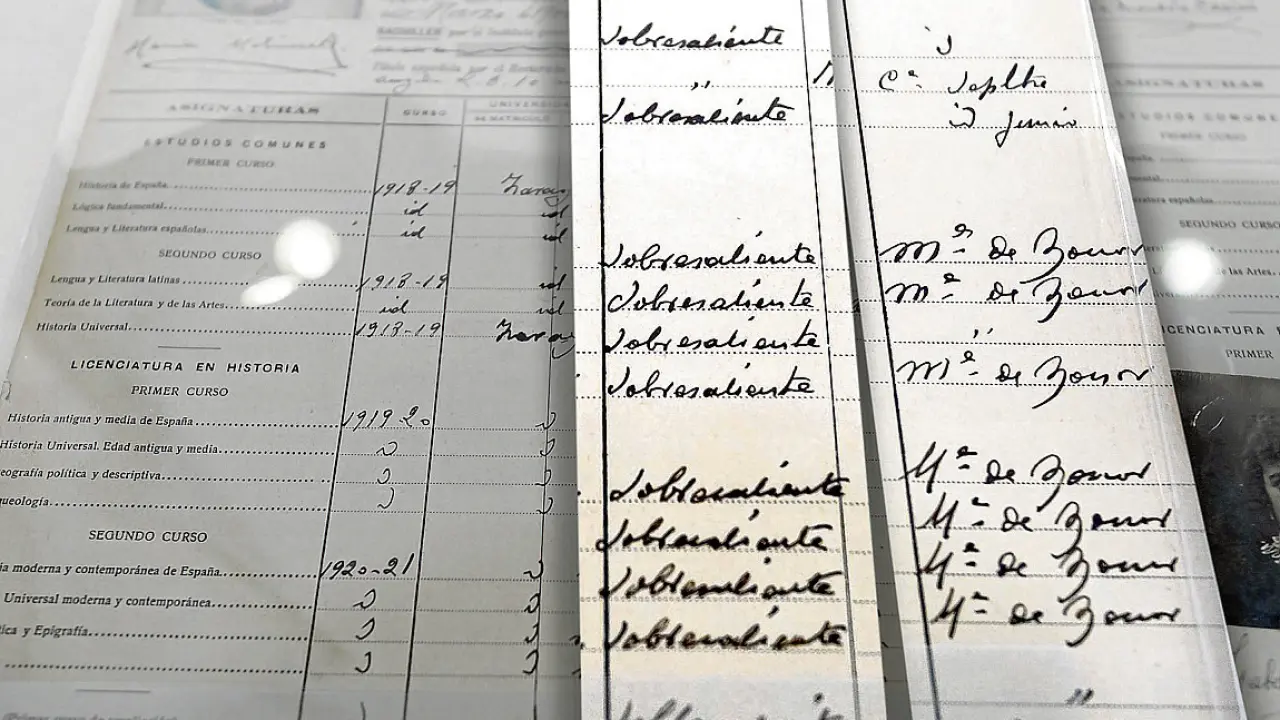 Marzo
BACHILLER por el Instituto
Título expedido por el
ASIGNATURAS
CURSO
UNIVERSIDAD
ESTUDIOS COMUNES
PRIMER CURSO
Historia de España 1918-19 Zarag
Lógica fundamental id id
Lengua y Literatura españolas id id
SEGUNDO CURSO
Lengua y Literatura latinas 1918-19 id
Teoría de la Literatura y de las Artes id id
Historia Universal 1918-19 Zarag
LICENCIATURA EN HISTORIA
PRIMER CURSO
Historia antigua y media de España 1919 20 "
Historia Universal. Edad antigua y media " "
eografía política y descriptiva " "
queología " "
SEGUNDO CURSO
ia moderna y contemporánea de España 1920-21 "
Universal moderna y contemporánea " "
tica y Epigrafía " "
" "
Sobresaliente
" Cª Septbre
Sobresaliente junio
Sobresaliente Mª de Honor
Sobresaliente Mª de Honor
Sobresaliente "
Sobresaliente Mª de Honor
Sobresaliente Mª de Honor
Sobresaliente Mª de Honor
Sobresaliente Mª de Honor
Sobresaliente Mª de Honor
"
ASIGNATURAS
ESTUDIOS COMUNE
PRIMER CURSO
españolas
SEGUNDO CURSO
de las Artes
ICENCIATURA
PRIMER